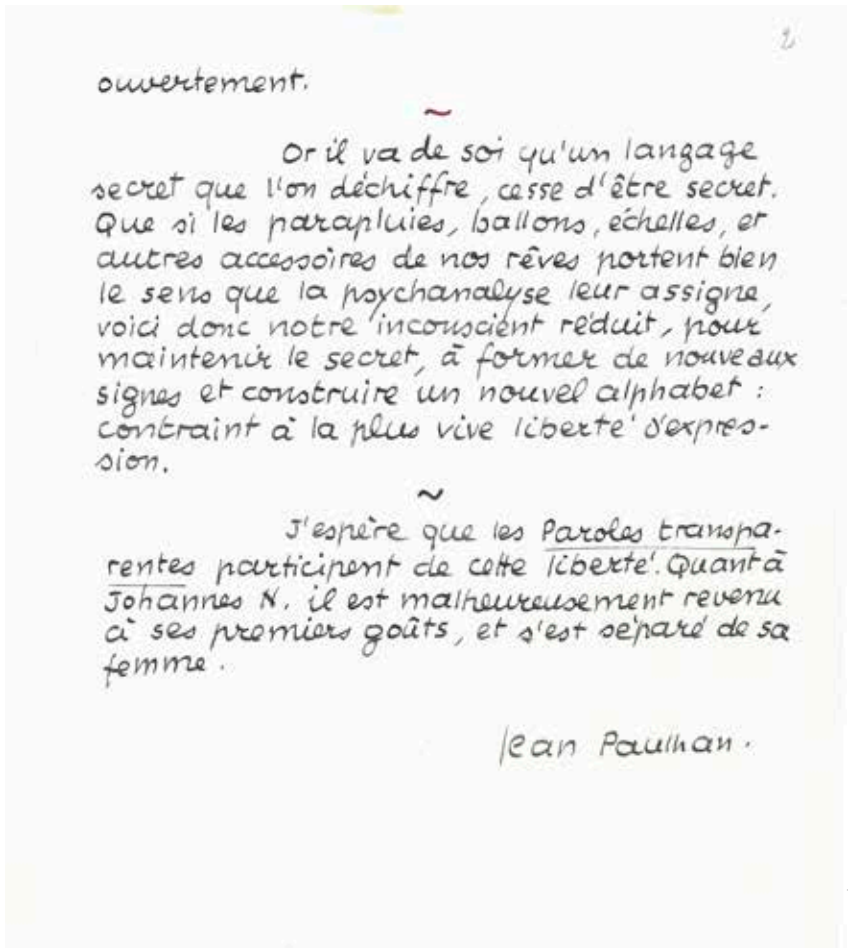 2
ouvertement.
~
Or il va de soi qu'un langage
secret que l'on déchiffre, cesse d'être secret.
Que si les parapluies, ballons, échelles, et
autres accessoires de nos rêves portent bien
le sens que la psychanalyse leur assigne,
voici donc notre inconscient réduit, pour
maintenir le secret, à former de nouveaux
signes et construire un nouvel alphabet :
contraint à la plus vive liberté d'expres-
sion.
~
J'espère que les Paroles transpa-
rentes participent de cette liberté. Quant à
Johannes N. il est malheureusement revenu
à ses premiers goûts, et s'est séparé de sa
femme.
Jean Paulhan.